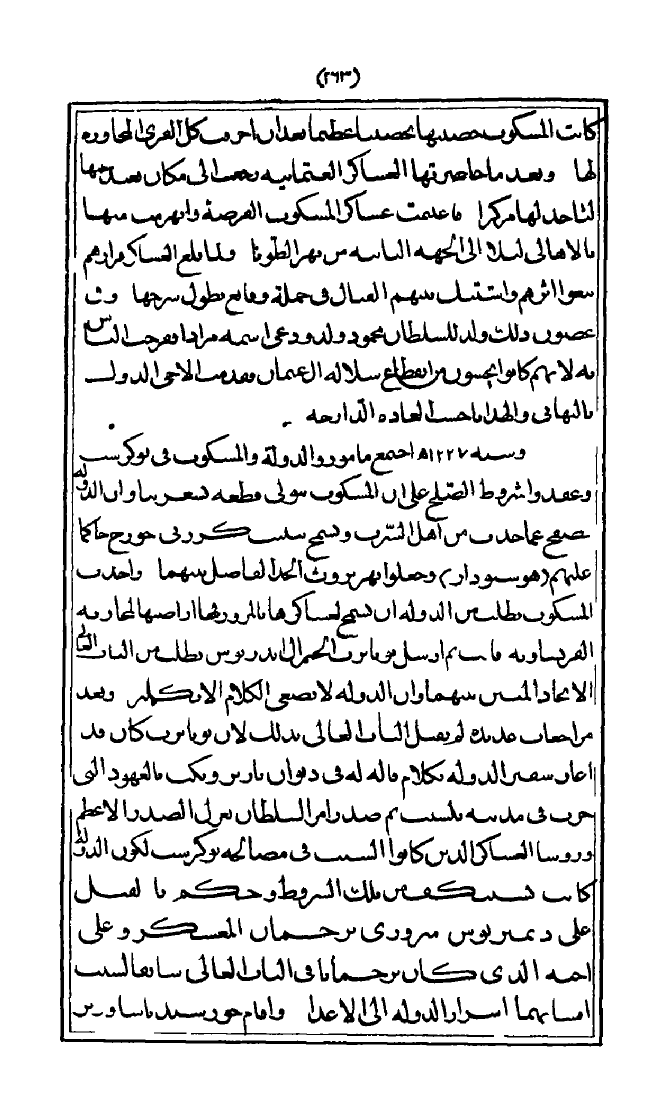 (٢٦٣)
كانت المسكوب حصنتها تحصينا عظيما بعد ان احرقت كل القرى المجاوره
لها وبعد ما حاصرتها العساكر العثمانيه رجعت الى مكان بعيد عنها
لتاخد لها مركزا فاغتنمت عساكر المسكوب الفرصة وانهزمت منها
بالاهالى ليلا الى الجهه الثانيه من نهر الطونا ولما بلغ العساكر فرارهم
تبعوا اثرهم واشتبك بينهم القتال فى جملة وقايع يطول شرحها وفى
غضون ذلك ولد للسلطان محمود ولد ودعى اسمه مراد ففرحت الناس
به لانهم كانوا يخشون من انقطاع سلاله ال عثمان فقدمت الاحى الدول
بالتهانى والهدايا حسب العاده الدارجه
وسنه ١٢٢٧ه اجتمع مامورو الدولة والمسكوب فى بوكرست
وعقدوا شروط الصلح على ان المسكوب تولى قطعه تسعربيا وان الدوله
تصفح عما حدث من اهل السرب وتسمح بتثبيت كرزنى جورج حاكما
عليهم (هوسبودار) وجعلوا نهر بروث الحد الفاصل بينهما واخدت
المسكوب تطلب من الدوله ان تسمح لعساكرها بالمرور فى اراضيها لمحاربه
الفرنساويه فابت ثم ارسل بونابرت الجنرال اندريوس يطلب من الباب العالى
الاتحاد المتين بينهما وان الدوله لا تصغى الكلام الانكليز وبعد
مراجعات عديدة لم يقبل الباب العالى بذلك لان بونابرت كان قد
اغار سفير الدوله بكلام قاله له فى ديوان باريز ونكث بالعهود التى
جرت فى مدينه تلست ثم صدر امر السلطان بعزل الصدر الاعظم
وروسا العساكر الدين كانوا السبب فى مصالحه بوكرست لكون الدوله
كانت تستنكف من تلك الشروط وحكم بالقتل
على دمتريوس مروزى ترجمان المعسكر وعلى
اخيه الدى كان ترجمانا فى الباب العالى سابقا لسبب
افشائهما اسرار الدوله الى الاعدا واقام خورسيد باشا وزير